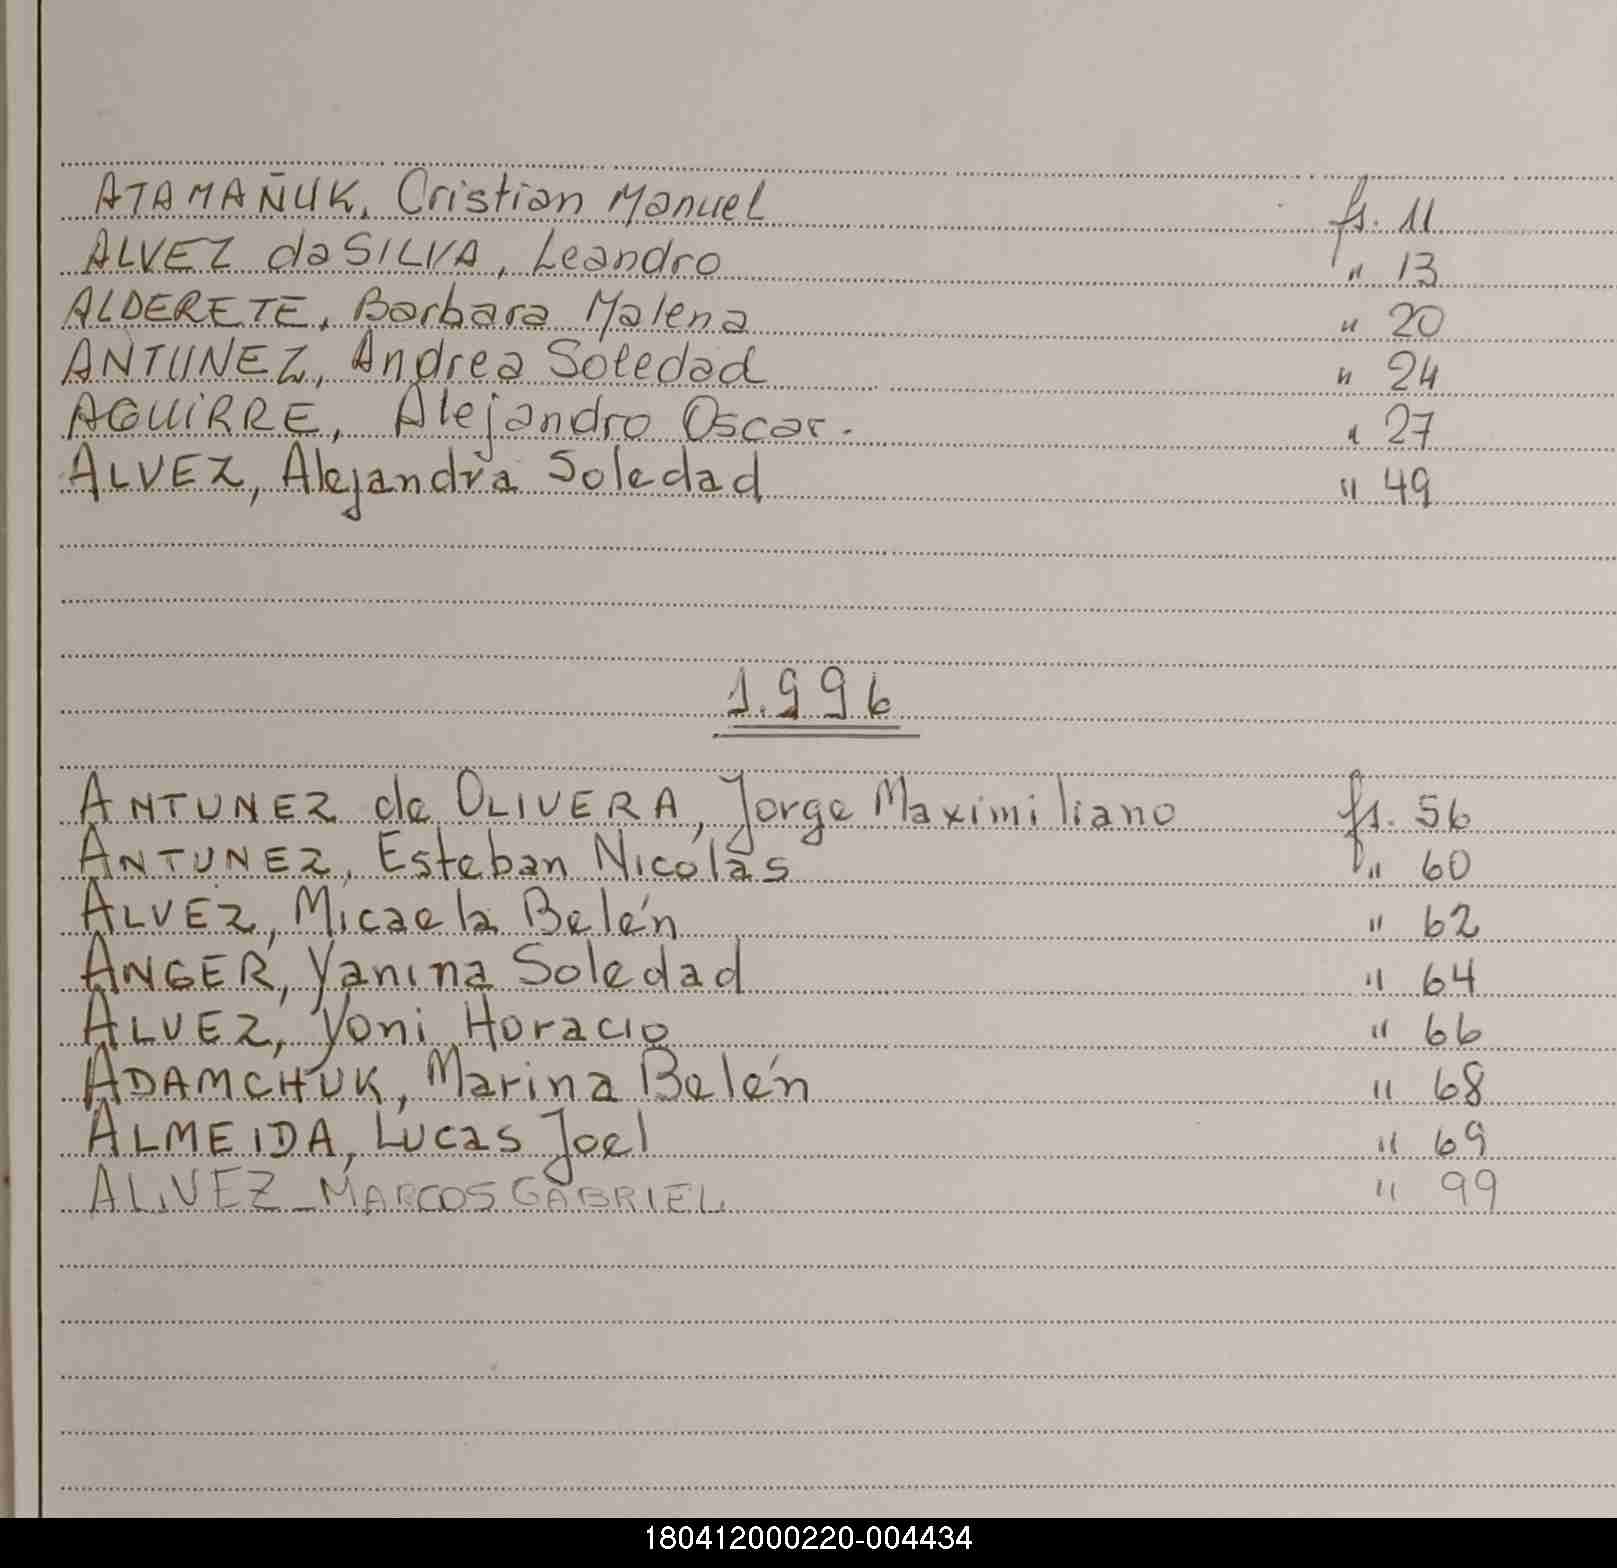 ATAMAÑUK, Cristian Manuel fs. 11
ALVEZ da SILVA, Leandro " 13
ALDERETE, Barbara Malena " 20
ANTUNEZ, Andrea Soledad " 24
AGUiRRE, Alejandro Oscar. " 27
ALVEZ, Alejandra Soledad " 49
1.996
ANTUNEZ de OLIVERA, Jorge Maximiliano fs. 56
ANTUNEZ, Esteban Nicolás " 60
ALVEZ, Micaela Belén " 62
ANGER, Yanina Soledad " 64
ALVEZ, Yoni Horacio " 66
ADAMCHUK, Marina Belén " 68
ALMEIDA, Lucas Joel " 69
ALVEZ_MARCOS GABRIEL " 99
180412000220-004434